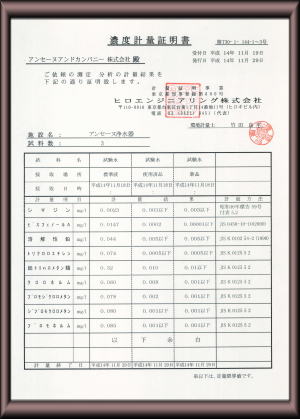 濃度計量証明書
受付日 平成 14年 11月 19日
発行日 平成 14年 11月 29日
アンセーヌアンドカンパニー 株式会社 殿
ご依頼の測定 分析の計量結果を
下記の通り証明致します。
計量証明事業
ヒロエンジニアリング株式会社
環境計量士 竹田
施設名: アンセーヌ浄水器
試料数: 3
試料名 試験水 試験水 試験水
採取場所 標準液 使用済品 新品
採取日時 平成14年11月18日 平成14年11月18日 平成14年11月18日
計量項目 計量結果 計量方法
シマジン mg/l 0.0023 0.003以下 0.003以下
ビスフェノールA mg/l 0.0147 0.0002 0.001以下
溶解性鉛 mg/l 0.044 0.005以下 0.005以下
トリクロロエチレン mg/l 0.074 0.0005以下 0.0005以下 JIS K 0125 5 2
総トリハロメタン類 mg/l 0.32 0.010 0.01以下 JIS K 0125 5 2
クロロホルム mg/l 0.080 0.004 0.001以下 JIS K 0125 5 2
ブロモジクロロメタン mg/l 0.078 0.002 0.001以下 JIS K 0125 5 2
ジブロモクロロメタン mg/l 0.080 0.001以下 0.001以下 JIS K 0125 5 2
ブロモホルム mg/l 0.085 0.001以下 0.001以下 JIS K 0125 5 2
以下余白
計量終了日 平成14年11月29日 平成14年11月29日 平成14年11月29日
※以下は、定量限界値です。